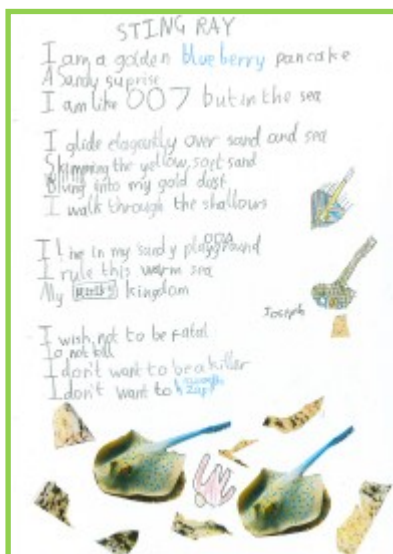 STING RAY
I am a golden blueberry pancake
A Sandy suprise
I am like 007 but in the sea
I glide elagantly over sand and sea
Skimming the yellow, soft sand
into my gold dust
I walk through the shallows
I live in my sandy playground
I rule this warm sea
My kingdom
Joseph
I wish not to be fatal
To not kill
I don't want to be a killer
I don't want to zap